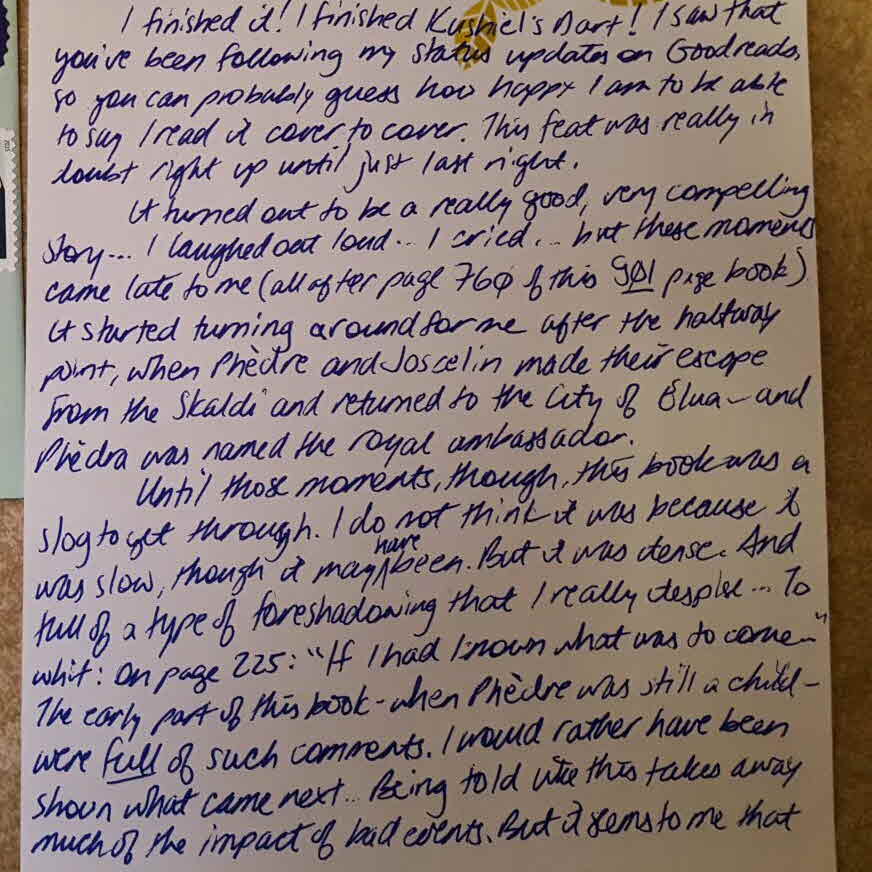 I finished it! I finished Kushiel's Dart! I saw that
you've been following my status updates on Goodreads,
so you can probably guess how happy I am to be able
to say I read it cover to cover. This feat was really in
doubt right up until just last night.
It turned out to be a really good, very compelling
story... I laughed out loud... I cried... but these moments
came late to me (all after page 760 of this 901 page book)
It started turning around for me after the halfway
point, when Phèdre and Joscelin made their escape
from the Skaldi and returned to the City of Elua - and
Phèdra was named the royal ambassador.
Until those moments, though, this book was a
slog to get through. I do not think it was because it
was slow, though it may have been. But it was dense. And
full of a type of foreshadowing that I really despise... To
whit: On page 225: "If I had known what was to come—"
The early part of this book - when Phèdre was still a child -
were full of such comments. I would rather have been
shown what came next... Being told like this takes away
much of the impact of bad events. But it seems to me that